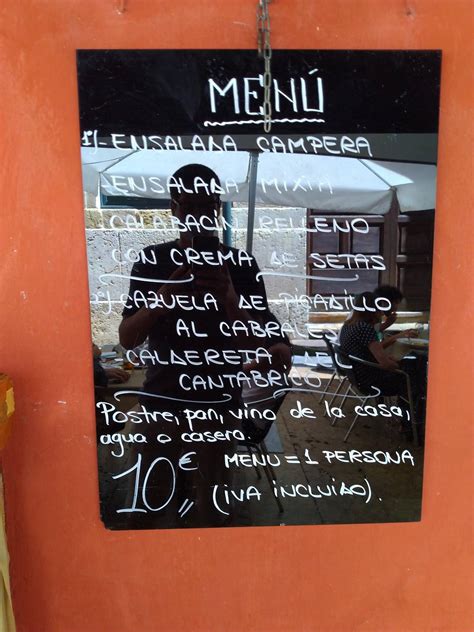 MENÚ
1º/- ENSALADA CAMPERA
- ENSALADA MIXTA
- CALABACÍN RELLENO
CON CREMA DE SETAS
2º/- CAZUELA DE PICADILLO
AL CABRALES
- CALDERETA DEL
CANTABRICO
Postre, pan, vino de la casa,
agua o casera.
10€ MENU = 1 PERSONA
(IVA INCLUIDO).